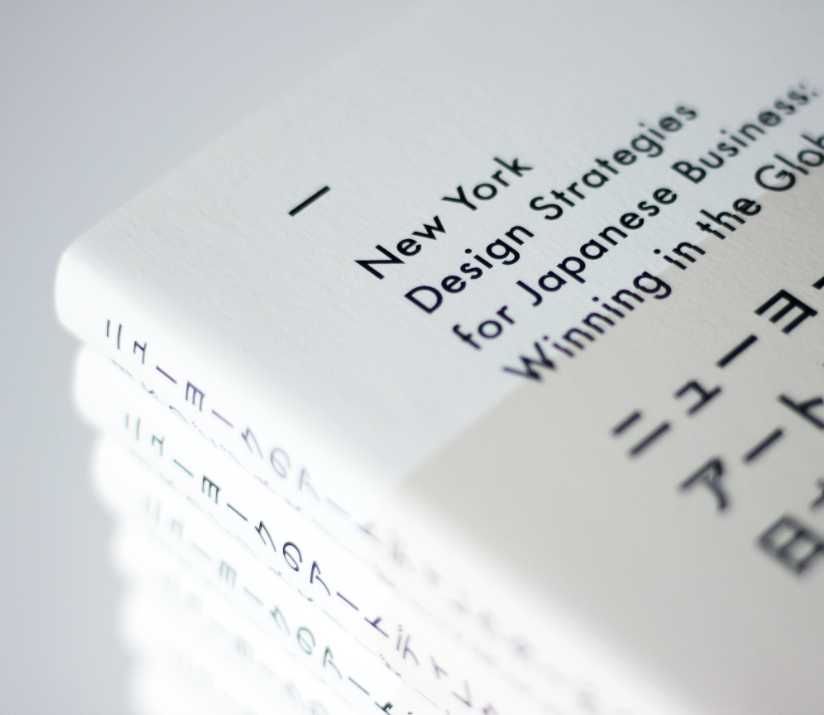 New York
Design Strategies
for Japanese Business:
Winning in the
ニューヨー
アート
日
ニューヨークのアート
ニューヨークのアートディレ
ニューヨークのアート